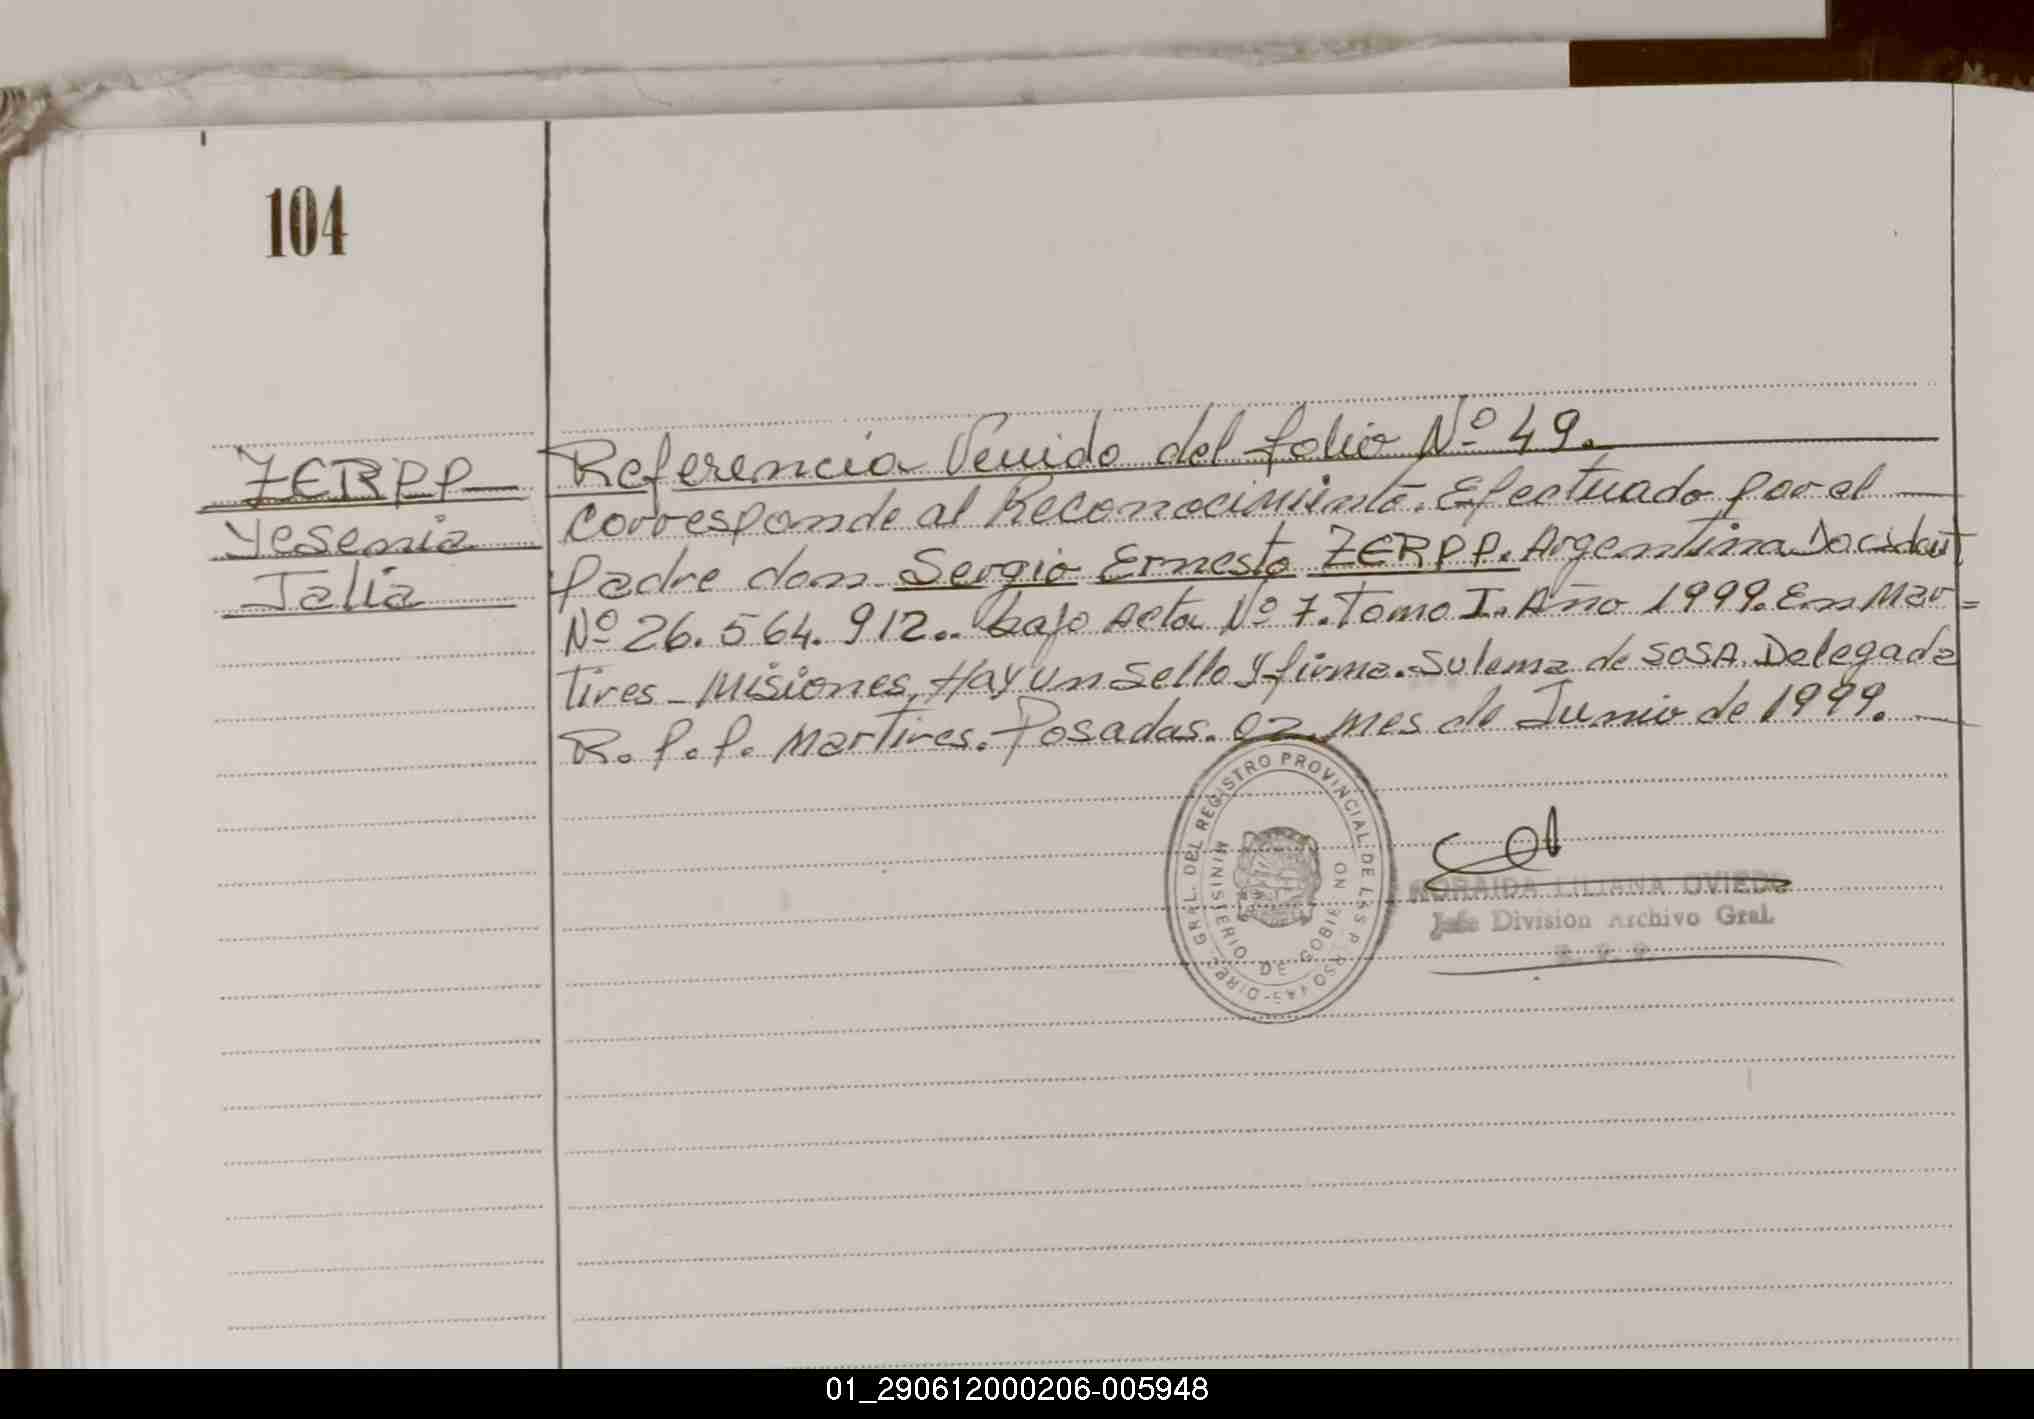 104
ZERPP
Yesenia
Talia
Referencia Venido del folio Nº 49.
Corresponde al Reconocimiento. Efectuado por el
padre don Sergio Ernesto ZERPP. Argentina Doc ident
Nº 26.564.912.. bajo Acta Nº 7. Tomo I. Año 1999. En Mar=
tires - Misiones, Hay un sello y firma. Sulema de SOSA. Delegada
R. P. P. Martires. Posadas. 02 mes de Junio de 1999.
DIREC. GRAL. DEL REGISTRO PROVINCIAL DE LAS PERSONAS
MINISTERIO DE GOBIERNO
NORAIDA LILIANA OVIEDO
Jefe Division Archivo Gral.
R. P. P.
01_290612000206-005948